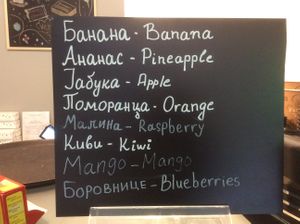 Банана - Banana
Ананас - Pineapple
Јабука - Apple
Поморанџа - Orange
Малина - Raspberry
Киви - Kiwi
Mango - Mango
Боровнице - Blueberries